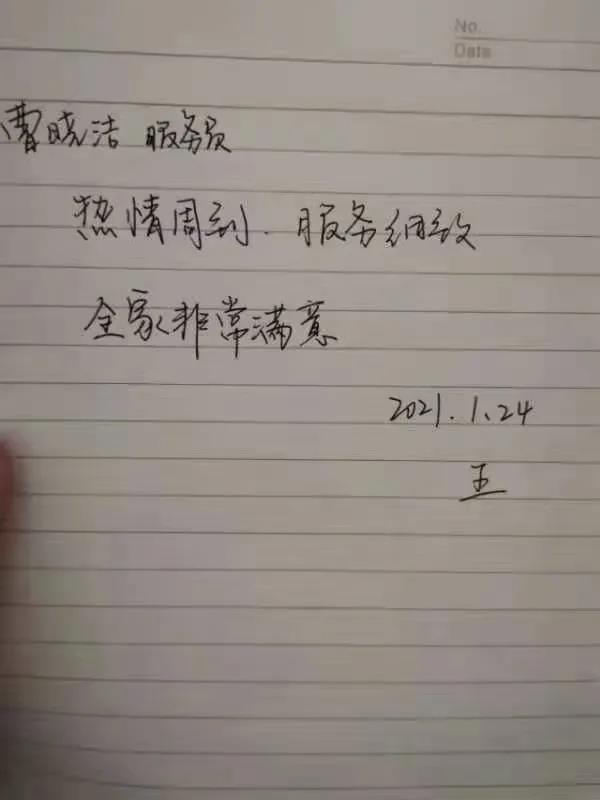 No.
Date
曹晓洁 服务员
热情周到. 服务细致
全家非常满意
2021.1.24
王